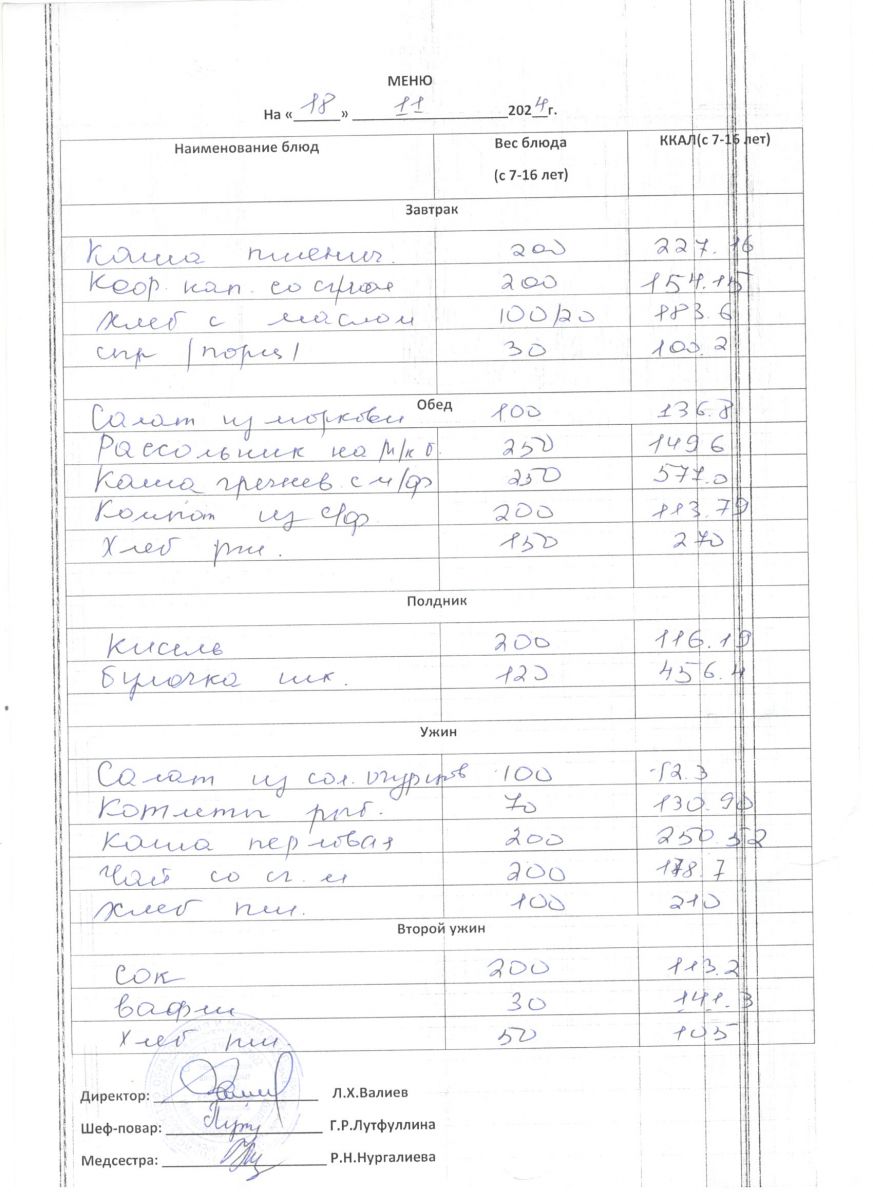 МЕНЮ
На «18» 11 2024г.
Наименование блюд Вес блюда (с 7-16 лет) ККАЛ(с 7-16 лет)
Завтрак
Каша пшенич. 200 227.16
нап. со 200 154.15
Хлеб с маслом 100/20 183.6
сыр /порц/ 30 100.2
Обед
Салат из моркови 100 136.8
Рассольник на м/к б. 250 149 6
Каша гречнев. с м/ф 250 577.0
Компот из с/ф 200 113.79
Хлеб рж. 150 270
Полдник
Кисель 200 116.19
булочка шк. 120 456.4
Ужин
Салат из сол. огурцов 100 52.3
Котлеты рыб. 70 130.90
каша перловая 200 250.52
Чай со сг. м 200 178.7
Хлеб пш. 100 210
Второй ужин
сок 200 113.2
вафли 30 141.3
Хлеб пш. 50 105
Директор: Л.Х.Валиев
Шеф-повар: Г.Р.Лутфуллина
Медсестра: Р.Н.Нургалиева